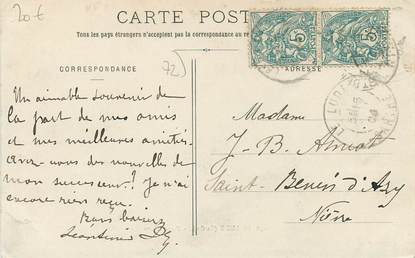 20 €
CARTE POST
Tous les pays étrangers n'acceptent pas la correspondance au re
72
CORRESPONDANCE
ADRESSE
5
5
Un aimable souvenir de
la part de mes amis
et mes meilleures amitiés.
Avez-vous des nouvelles de
mon successeur? Je n'ai
encore rien reçu.
Bons baisers
Léontine
Madame
J-B.
Saint-Benin d'Azy
Nièvre